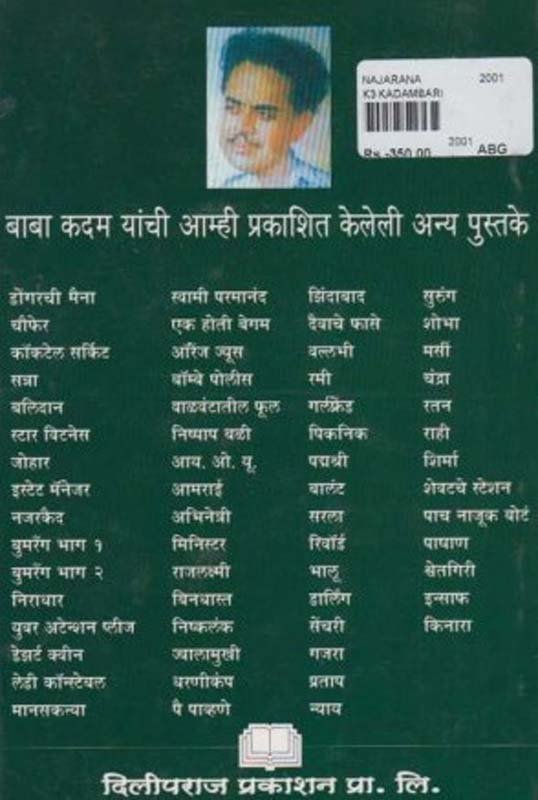 NAJARANA 2001
K3 KADAMBARI
2001
Rs.-350.00 ABG
बाबा कदम यांची आम्ही प्रकाशित केलेली अन्य पुस्तके
डोंगरची मैना स्वामी परमानंद झिंदाबाद सुरुंग
चौफेर एक होती बेगम दैवाचे फासे शोभा
कॉकटेल सर्किट ऑरेंज ज्यूस वल्लभी मर्सी
सत्रा बॉम्बे पोलीस रमी चंद्रा
बलिदान वाळवंटातील फूल गर्लफ्रेंड रतन
स्टार विटनेस निष्पाप बळी पिकनिक राही
जोहार आय. ओ. यू. पद्मश्री शिर्मा
इस्टेट मॅनेजर आमराई वालंट शेवटचे स्टेशन
नजरकैद अभिनेत्री सरला पाच नाजूक बोटं
बुमरँग भाग १ मिनिस्टर रिवॉर्ड पाषाण
बुमरँग भाग २ राजलक्ष्मी भालू श्वेतगिरी
निराधार बिनधास्त डार्लिंग इन्साफ
युवर अटेन्शन प्लीज निष्कलंक सेंचरी किनारा
डेझर्ट क्वीन ज्वालामुखी गजरा
लेडी कॉन्स्टेबल धरणीकंप प्रताप
मानसकन्या पै पाव्हणे न्याय
दिलीपराज प्रकाशन प्रा. लि.